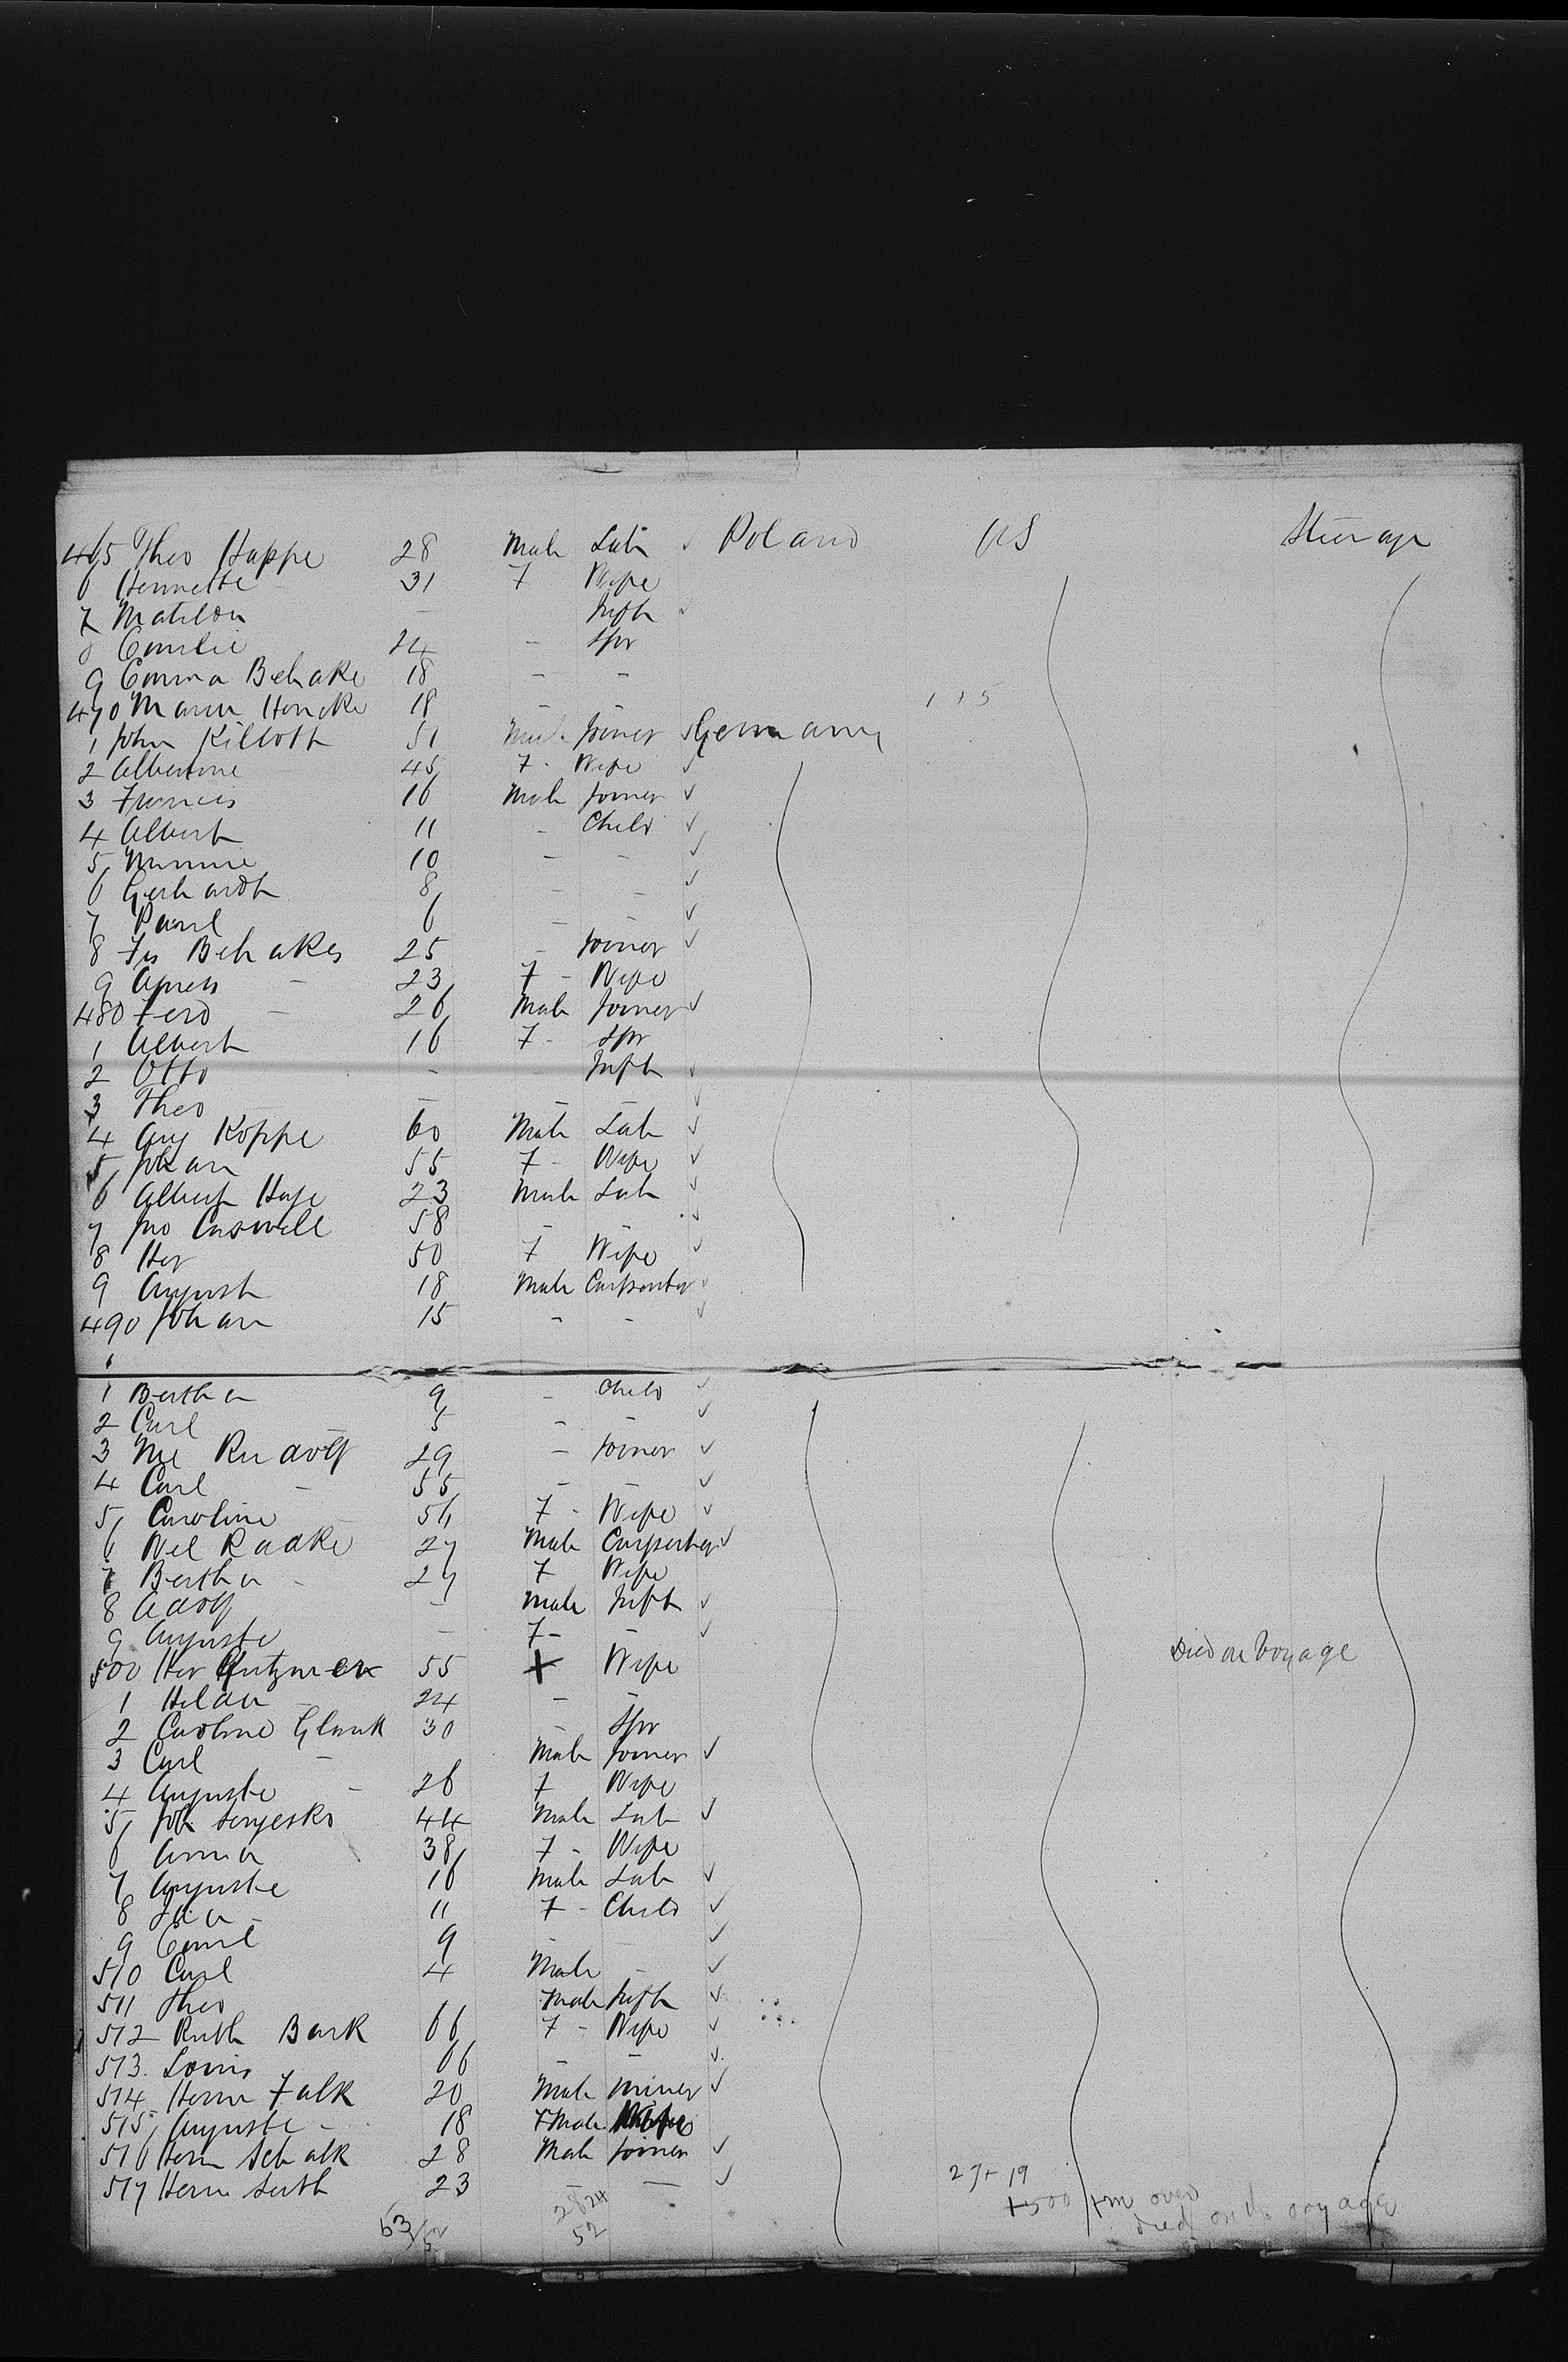 465 Theo Happe 28 Male Lab ✓ Poland US Steerage
6 Hennette - 31 F Wife
7 Matilda - Inft ✓
8 Emilie 24 - Spr
9 Emma Behake 18 - -
470 Maria Hencke 18 115
1 John Killoth 51 Male Joiner ✓ Germany
2 Albertine 45 F - Wife ✓
3 Francis 16 Male Joiner ✓
4 Albert 11 - Child ✓
5 Minnie 10 - - ✓
6 Gerhardt 8 - - ✓
7 Paul 6 - - ✓
8 Fr Behakes 25 - Joiner ✓
9 Agnes - 23 F - Wife
480 Ferd - 26 Male Joiner ✓
1 Albert 16 F - Spr
2 Otto - - Inft ✓
3 Theo - - - - ✓
4 Aug Koppe 60 Male Lab ✓
5 Johan 55 F - Wife ✓
6 Albert Hase 23 Male Lab ✓
7 Jno Caswell 58 - - ✓
8 Her 50 F Wife ✓
9 August 18 Male Carpenter ✓
490 Johan 15 - - ✓
1 Bertha 9 - Child ✓
2 Carl - 5 - - ✓
3 Rudolf 29 - Joiner ✓
4 Carl - 55 - - ✓
5 Caroline - 56 F - Wife ✓
6 Wel Radke 27 Male Carpenter ✓
7 Bertha - 27 F Wife
8 Adolf - Male Inft ✓
9 Auguste - F - - ✓
500 Her 55 X Wife Died on Voyage
1 Hilda - 24 - -
2 Caroline Glauk 30 - Spr
3 Carl - Male Joiner ✓
4 Auguste - 26 F Wife
5 Joh 44 Male Lab ✓
6 Anna 38 F - Wife
7 Auguste 16 Male Lab ✓
8 - 11 F - Child ✓
9 Emil 9 - - ✓
510 Carl 4 Male - ✓
511 Theo Male Inft ✓
512 Ruth Bark 66 F - Wife ✓
513. Louis 66 - - ✓
514 Herm Falk 20 Male Miner ✓
515 Auguste - 18 F
516 Herm Schalk 28 Male Joiner ✓
517 Herm 23 - - ✓ 27+19
+500 died on the voyage
53/52 28 24
52